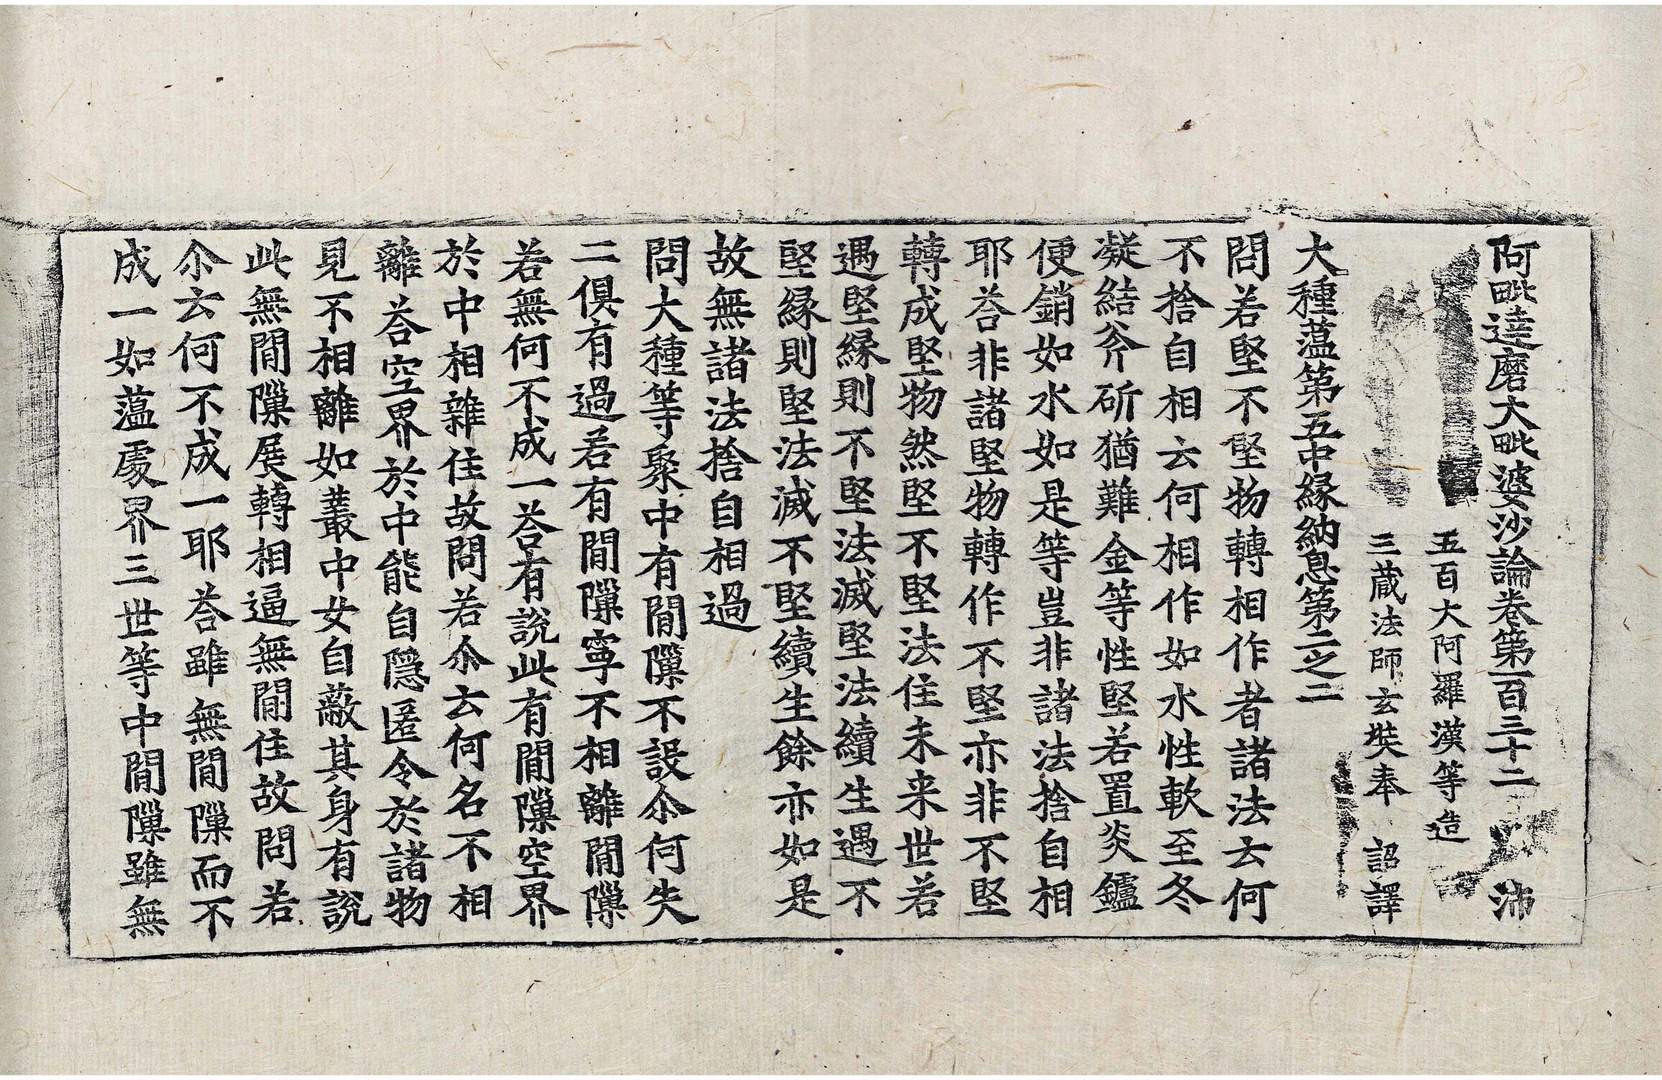 阿毗達磨大毗婆沙論卷第一百三十二　沛
五百大阿羅漢等造
三蔵法師玄奘奉　詔譯
大種蕰第五中縁納息第二之二
問若堅不堅物轉相作者諸法云何
不捨自相云何相作如水性軟至冬
凝結斧斫猶難金等性堅若置炎鑪
便銷如水如是等豈非諸法捨自相
耶荅非諸堅物轉作不堅亦非不堅
轉成堅物然堅不堅法住未来世若
遇堅縁則不堅法滅堅法續生遇不
堅縁則堅法滅不堅續生餘亦如是
故無諸法捨自相過
問大種等聚中有閒隟不設尒何失
二俱有過若有閒隟寧不相離閒隟
若無何不成一荅有說此有閒隟空界
於中相雜住故問若尒云何名不相
離荅空界於中能自隱匿令於諸物
見不相離如叢中女自蔽其身有說
此無閒隟展轉相逼無閒住故問若
尒云何不成一耶荅雖無閒隟而不
成一如蕰處界三世等中閒隟雖無